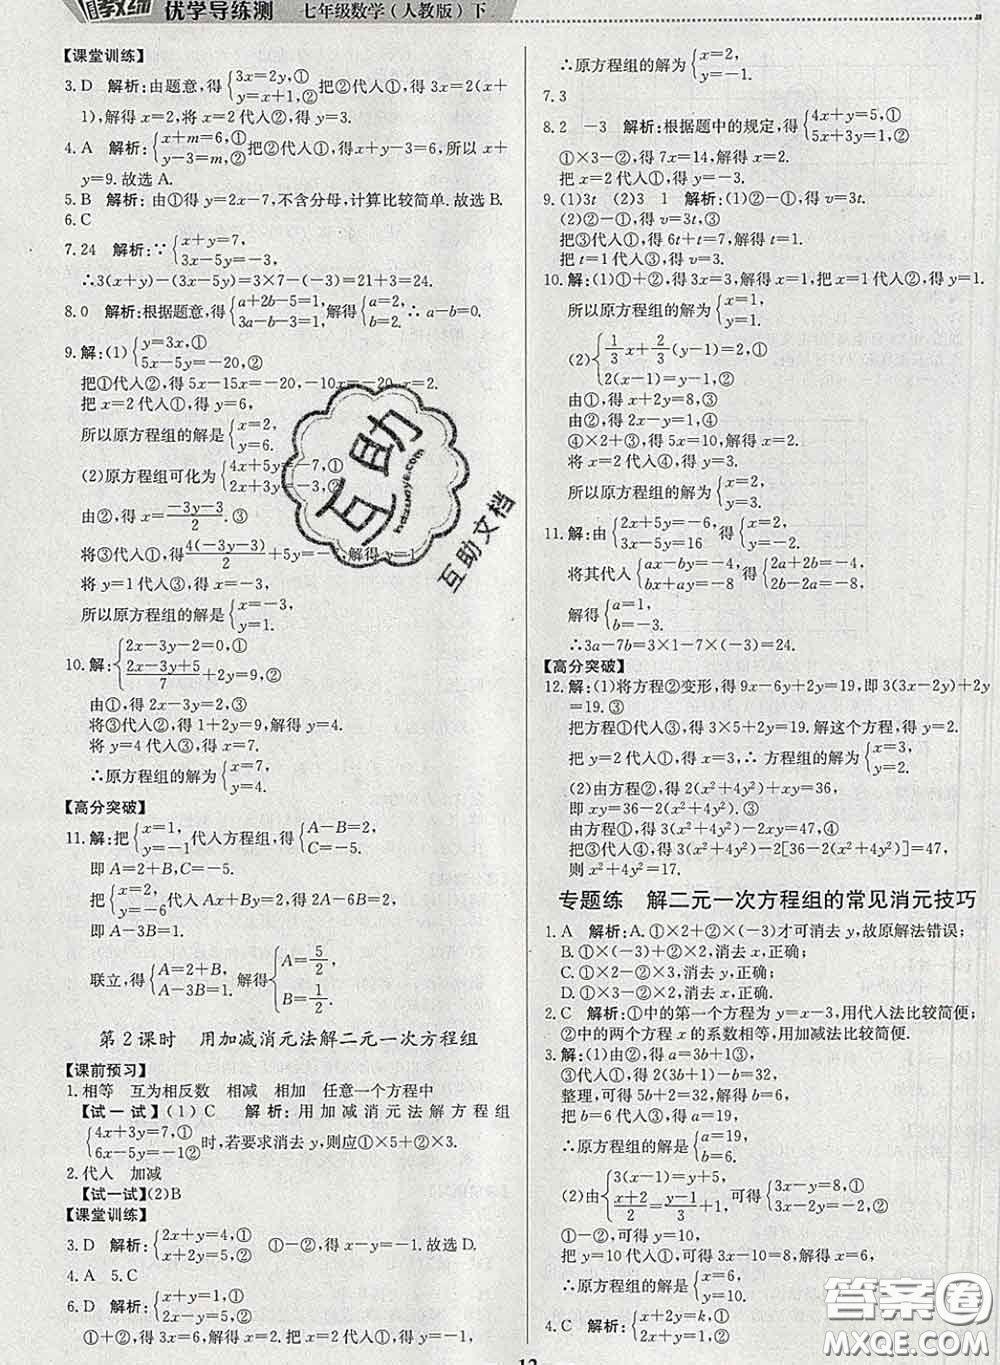 教练 优学导练测 七年级数学(人教版)下
【课堂训练】
3. D 解析:由题意,得{3x=2y,① y=x+1,②把②代入①,得3x=2(x+
1),解得x=2,将x=2代入②,得y=3.
4. A 解析:{x+m=6,① y-3=m,②把②代入①,得x+y-3=6,所以x+
y=9.故选A.
5. B 解析:由①得y=2x-7,不含分母,计算比较简单.故选B.
6. C
7. 24 解析:∵{x+y=7, 3x-5y=-3,
∴3(x+y)-(3x-5y)=3×7-(-3)=21+3=24.
8. 0 解析:根据题意,得{a+2b-5=1, 3a-b-3=1,解得{a=2, b=2.∴a-b=0.
9. 解:(1){y=3x,① 5x-5y=-20,②
把①代入②,得5x-15x=-20,-10x=-20,x=2.
把x=2代入①,得y=6,
所以原方程组的解是{x=2, y=6.
(2)原方程组可化为{4x+5y=-7,① 2x+3y=-3,②
由②,得x=(-3y-3)/2.③
将③代入①,得4(-3y-3)/2+5y=-7.解得y=-1
将y=-1代入③,得x=-3,
所以原方程组的解是{x=-3, y=-1.
10. 解:{2x-3y-2=0,① (2x-3y+5)/7+2y=9,②
由①,得2x-3y=2,③
将③代入②,得1+2y=9,解得y=4.
将y=4代入③,得x=7,
∴原方程组的解为{x=7, y=4.
【高分突破】
11. 解:把{x=1, y=-1代入方程组,得{A-B=2, C=-5.
即A=2+B,C=-5.
把{x=2, y=-6代入Ax+By=2,得2A-6B=2,
即A-3B=1.
联立,得{A=2+B, A-3B=1.解得{A=5/2, B=1/2.
第2课时 用加减消元法解二元一次方程组
【课前预习】
1. 相等 互为相反数 相减 相加 任意一个方程中
【试一试】(1)C 解析:用加减消元法解方程组
{4x+3y=7,① 6x-5y=-1,②时,若要求消去y,则应①×5+②×3.
2. 代入 加减
【试一试】(2)B
【课堂训练】
3. D 解析:{2x+y=4,① x+2y=5,② ①-②,得x-y=-1.故选D.
4. A 5. C
6. D 解析:{x+y=1,① x-y=3,②
①+②,得2x=4,解得x=2,把x=2代入①,得y=-1,
∴原方程组的解为{x=2, y=-1.
7. 3
8. 2 -3 解析:根据题中的规定,得{4x+y=5,① 5x+3y=1,②
①×3-②,得7x=14,解得x=2.
把x=2代入①,得y=-3.
9. (1)3t (2)3 1 解析:(1)②-①,得v=3t.
(2)②-①,得v=3t,③
把③代入①,得6t+t=7,解得t=1.
把t=1代入③,得v=3.
10. 解:(1)①+②,得3x=3,解得x=1,把x=1代入②,得y=1.
所以原方程组的解为{x=1, y=1.
(2){1/3x+2/3(y-1)=2,① 2(x-1)=y-1.②
由①,得x+2y=8,③
由②,得2x-y=1,④
④×2+③,得5x=10,解得x=2.
将x=2代入④,得y=3.
所以原方程组的解为{x=2, y=3.
11. 解:由{2x+5y=-6, 3x-5y=16得{x=2, y=-2.
将其代入{ax-by=-4, bx+ay=-8得{2a+2b=-4, 2b-2a=-8.
解得{a=1, b=-3.
∴3a-7b=3×1-7×(-3)=24.
【高分突破】
12. 解:(1)将方程②变形,得9x-6y+2y=19,即3(3x-2y)+2y
=19.③
把方程①代入③,得3×5+2y=19.解这个方程,得y=2.
把y=2代入①,得x=3,∴方程组的解为{x=3, y=2.
(2)由方程②,得2(x²+4y²)=36-xy,
即xy=36-2(x²+4y²).③
由方程①,得3(x²+4y²)-2xy=47,④
把③代入④,得3(x²+4y²)-2[36-2(x²+4y²)]=47,
则x²+4y²=17.
专题练 解二元一次方程组的常见消元技巧
1. A 解析:A.①×2+②×(-3)才可消去y,故原解法错误;
B. ①×(-3)+②×2,消去x,正确;
C. ①×2-②×3,消去y,正确;
D. ①×3-②×2,消去x,正确.
2. C 解析:①中的第一个方程为y=x-3,用代入法比较简便;
②中的两个方程x的系数相等,用加减法比较简便.
3. 解:(1)由①,得a=3b+1③,
把③代入②,得2(3b+1)-b=32,
整理,可得5b+2=32,解得b=6,
把b=6代入③,解得a=19,
∴原方程组的解是{a=19, b=6.
(2)由{3(x-1)=y+5, (x+2)/2=(y-1)/3+1,可得{3x-y=8,① 3x-2y=-2,②
①-②,可得y=10,
把y=10代入①,可得3x-10=8,解得x=6,
∴原方程组的解是{x=6, y=10.
4. C 解析:{x+2y=k,① 2x+y=1,②
12
互助
hdzuoye.com
互助文档
答案圈
MXQE.COM